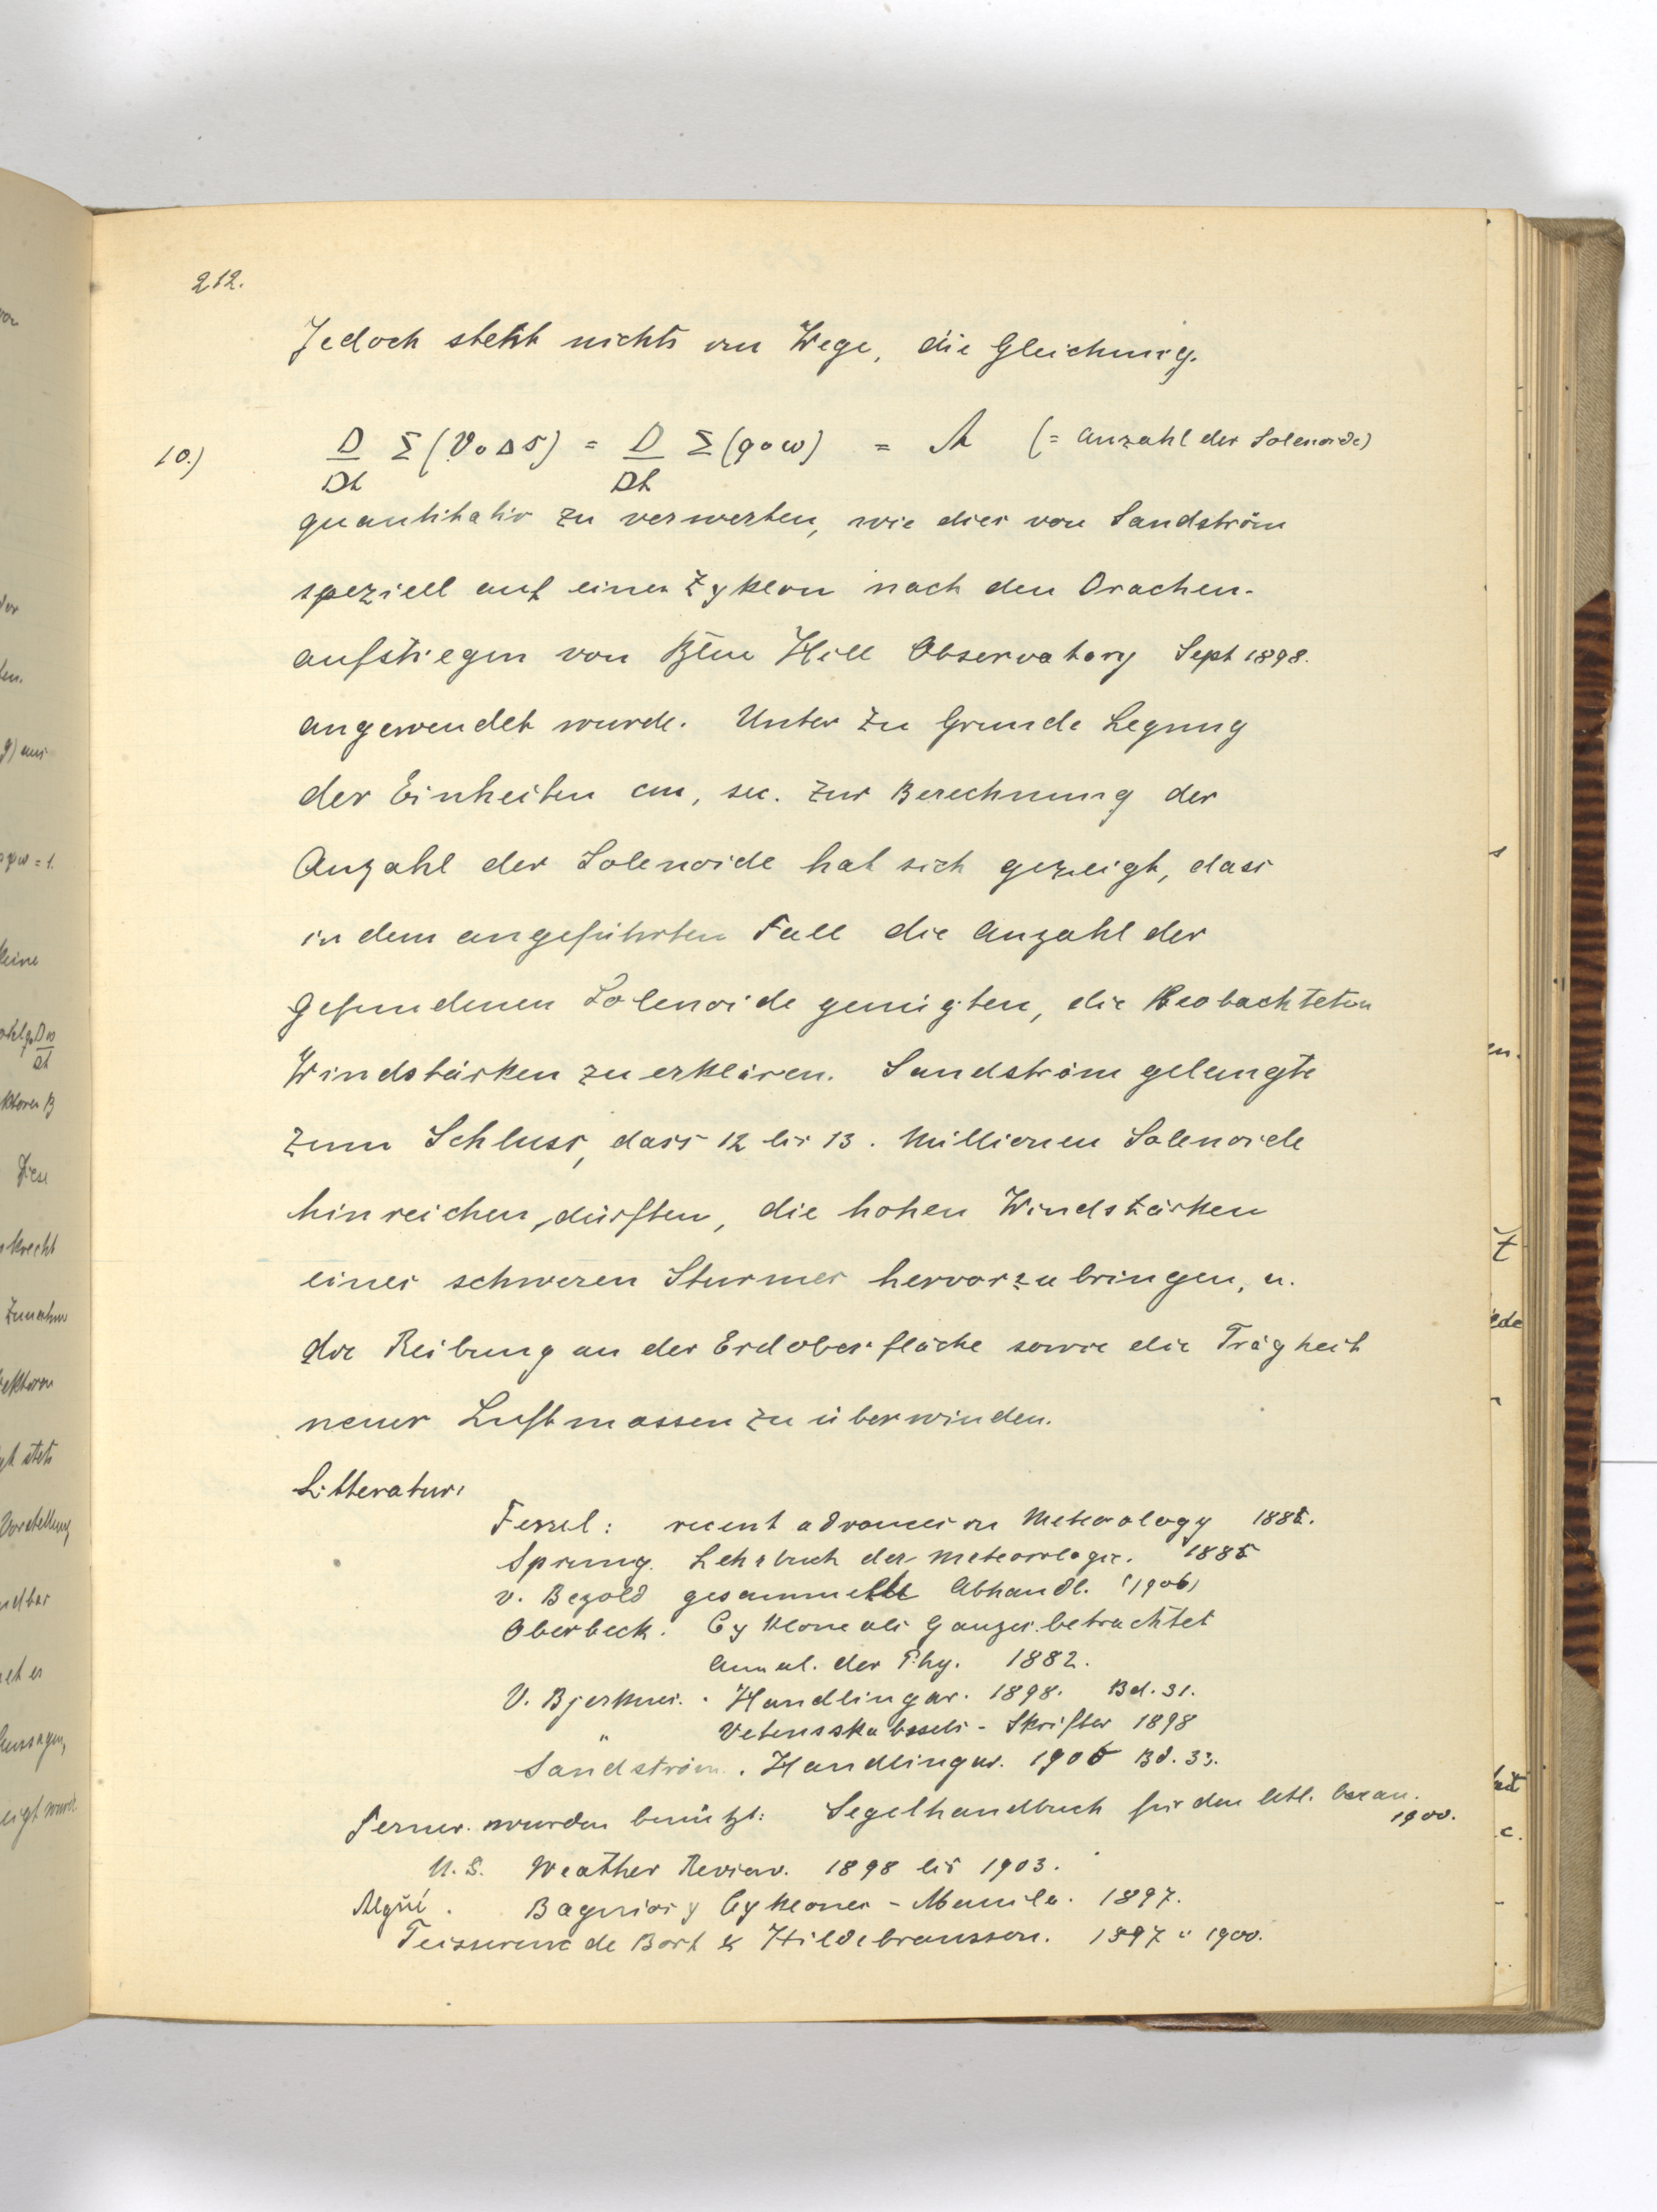 212.
Jedoch steht nichts im Wege, die Gleichung.
10.) D/Dt Σ(V∘Δs) = D/Dt Σ(q∘ω) = A (= Anzahl der Solenoide)
quantitativ zu verwerten, wie dies von Sandström
speziell auf einen Zyklon nach den Drachen-
aufstiegen von Blue Hill Observatory Sept 1898.
angewendet wurde. Unter zu Grunde Legung
der Einheiten cm, sec. zur Berechnung der
Anzahl der Solenoide hat sich gezeigt, dass
in dem angeführten Fall die Anzahl der
gefundenen Solenoide genügten, die beobachteten
Windstärken zu erklären. Sandström gelangte
zum Schluss, dass 12 bis 13. Millionen Solenoide
hinreichen dürften, die hohen Windstärken
eines schweren Sturmes hervorzubringen, u.
die Reibung an der Erdoberfläche sowie die Trägheit
neuer Luftmassen zu überwinden.
Litteratur:
Ferrel: recent advances in Meteorology 1885.
Sprung. Lehrbuch der Meteorologie. 1885
v. Bezold gesammelte Abhandl. (1906)
Oberbeck. Cyklone als Ganzes betrachtet
Annal. der Phy. 1882.
V. Bjerknes. Handlingar. 1898. Bd. 31.
" Vetensskabssels - Skrifter 1898
Sandström. Handlingar. 1900 Bd. 33.
Ferner wurden benützt: Segelhandbuch für den atl. Ozean.
1900.
U.S. Weather Review. 1898 bis 1903.
Algué. Baguios y Cyklones - Manila. 1897.
Teisserenc de Bort & Hildebransson. 1897 u 1900.